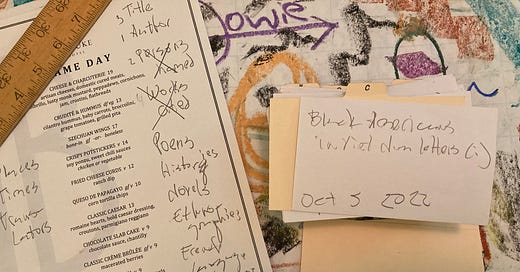 UKE
AME DAY
CHEESE & CHARCUTERIE 19
artisan cheeses, domestic cured meats,
lusty monk mustard, peppadews, cornichons,
jam, crostini, flatbreads
CRUDITÉ & HUMMUS 13
cilantro hummus, baby carrots, broccolini,
grape tomatoes, grilled pita
SZECHUAN WINGS 17
bone-in gf -or- boneless
CRISPY POTSTICKERS v 14
soy ponzu, sweet chili sauce
chicken or vegetable
FRIED CHEESE CURDS v 12
ranch dip
QUESO DE PAPAGAYO 10
corn tortilla chips
CLASSIC CAESAR 13
romaine hearts, bold caesar dressing,
croutons, parmigiano reggiano
CHOCOLATE SLAB CAKE v 9
chocolate sauce, chantilly
CLASSIC CRÈME BRÛLÉE 9
macerated berries
Title
1 Author
2 Persons
named
Works
Poems
Histories
Novels
Ethno-
graphies
Times
C
Black Americans
letters
Oct 5 2022